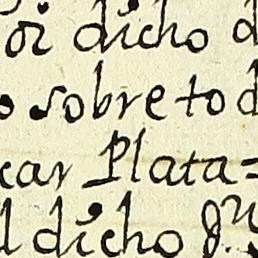 or dicho d
o sobre to d
car Plata=
l dicho g.n